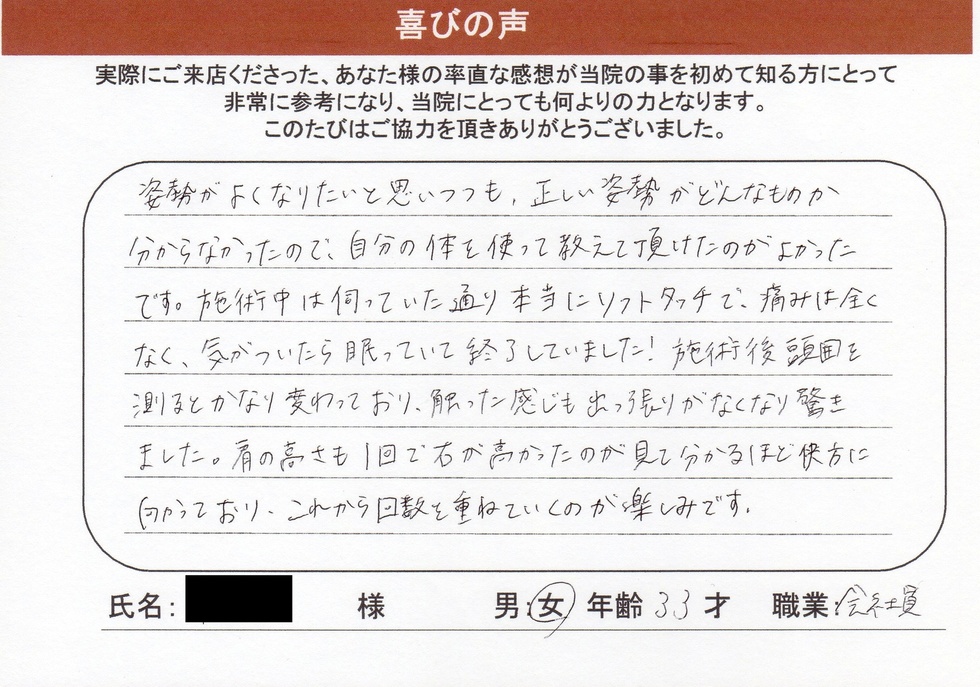 喜びの声
実際にご来店くださった、あなた様の率直な感想が当院の事を初めて知る方にとって
非常に参考になり、当院にとっても何よりの力となります。
このたびはご協力を頂きありがとうございました。
姿勢がよくなりたいと思いつつも、正しい姿勢がどんなものか
分からなかったので、自分の体を使って教えて頂けたのがよかった
です。施術中は伺っていた通り本当にソフトタッチで、痛みは全く
なく、気がついたら眠っていて終了していました！施術後頭囲を
測るとかなり変わっており、触った感じも出っ張りがなくなり驚き
ました。肩の高さも1回で右が高かったのが見て分かるほど快方に
向かっており、これから回数を重ねていくのが楽しみです。
氏名: 様 男:女 年齢 33 才 職業:会社員